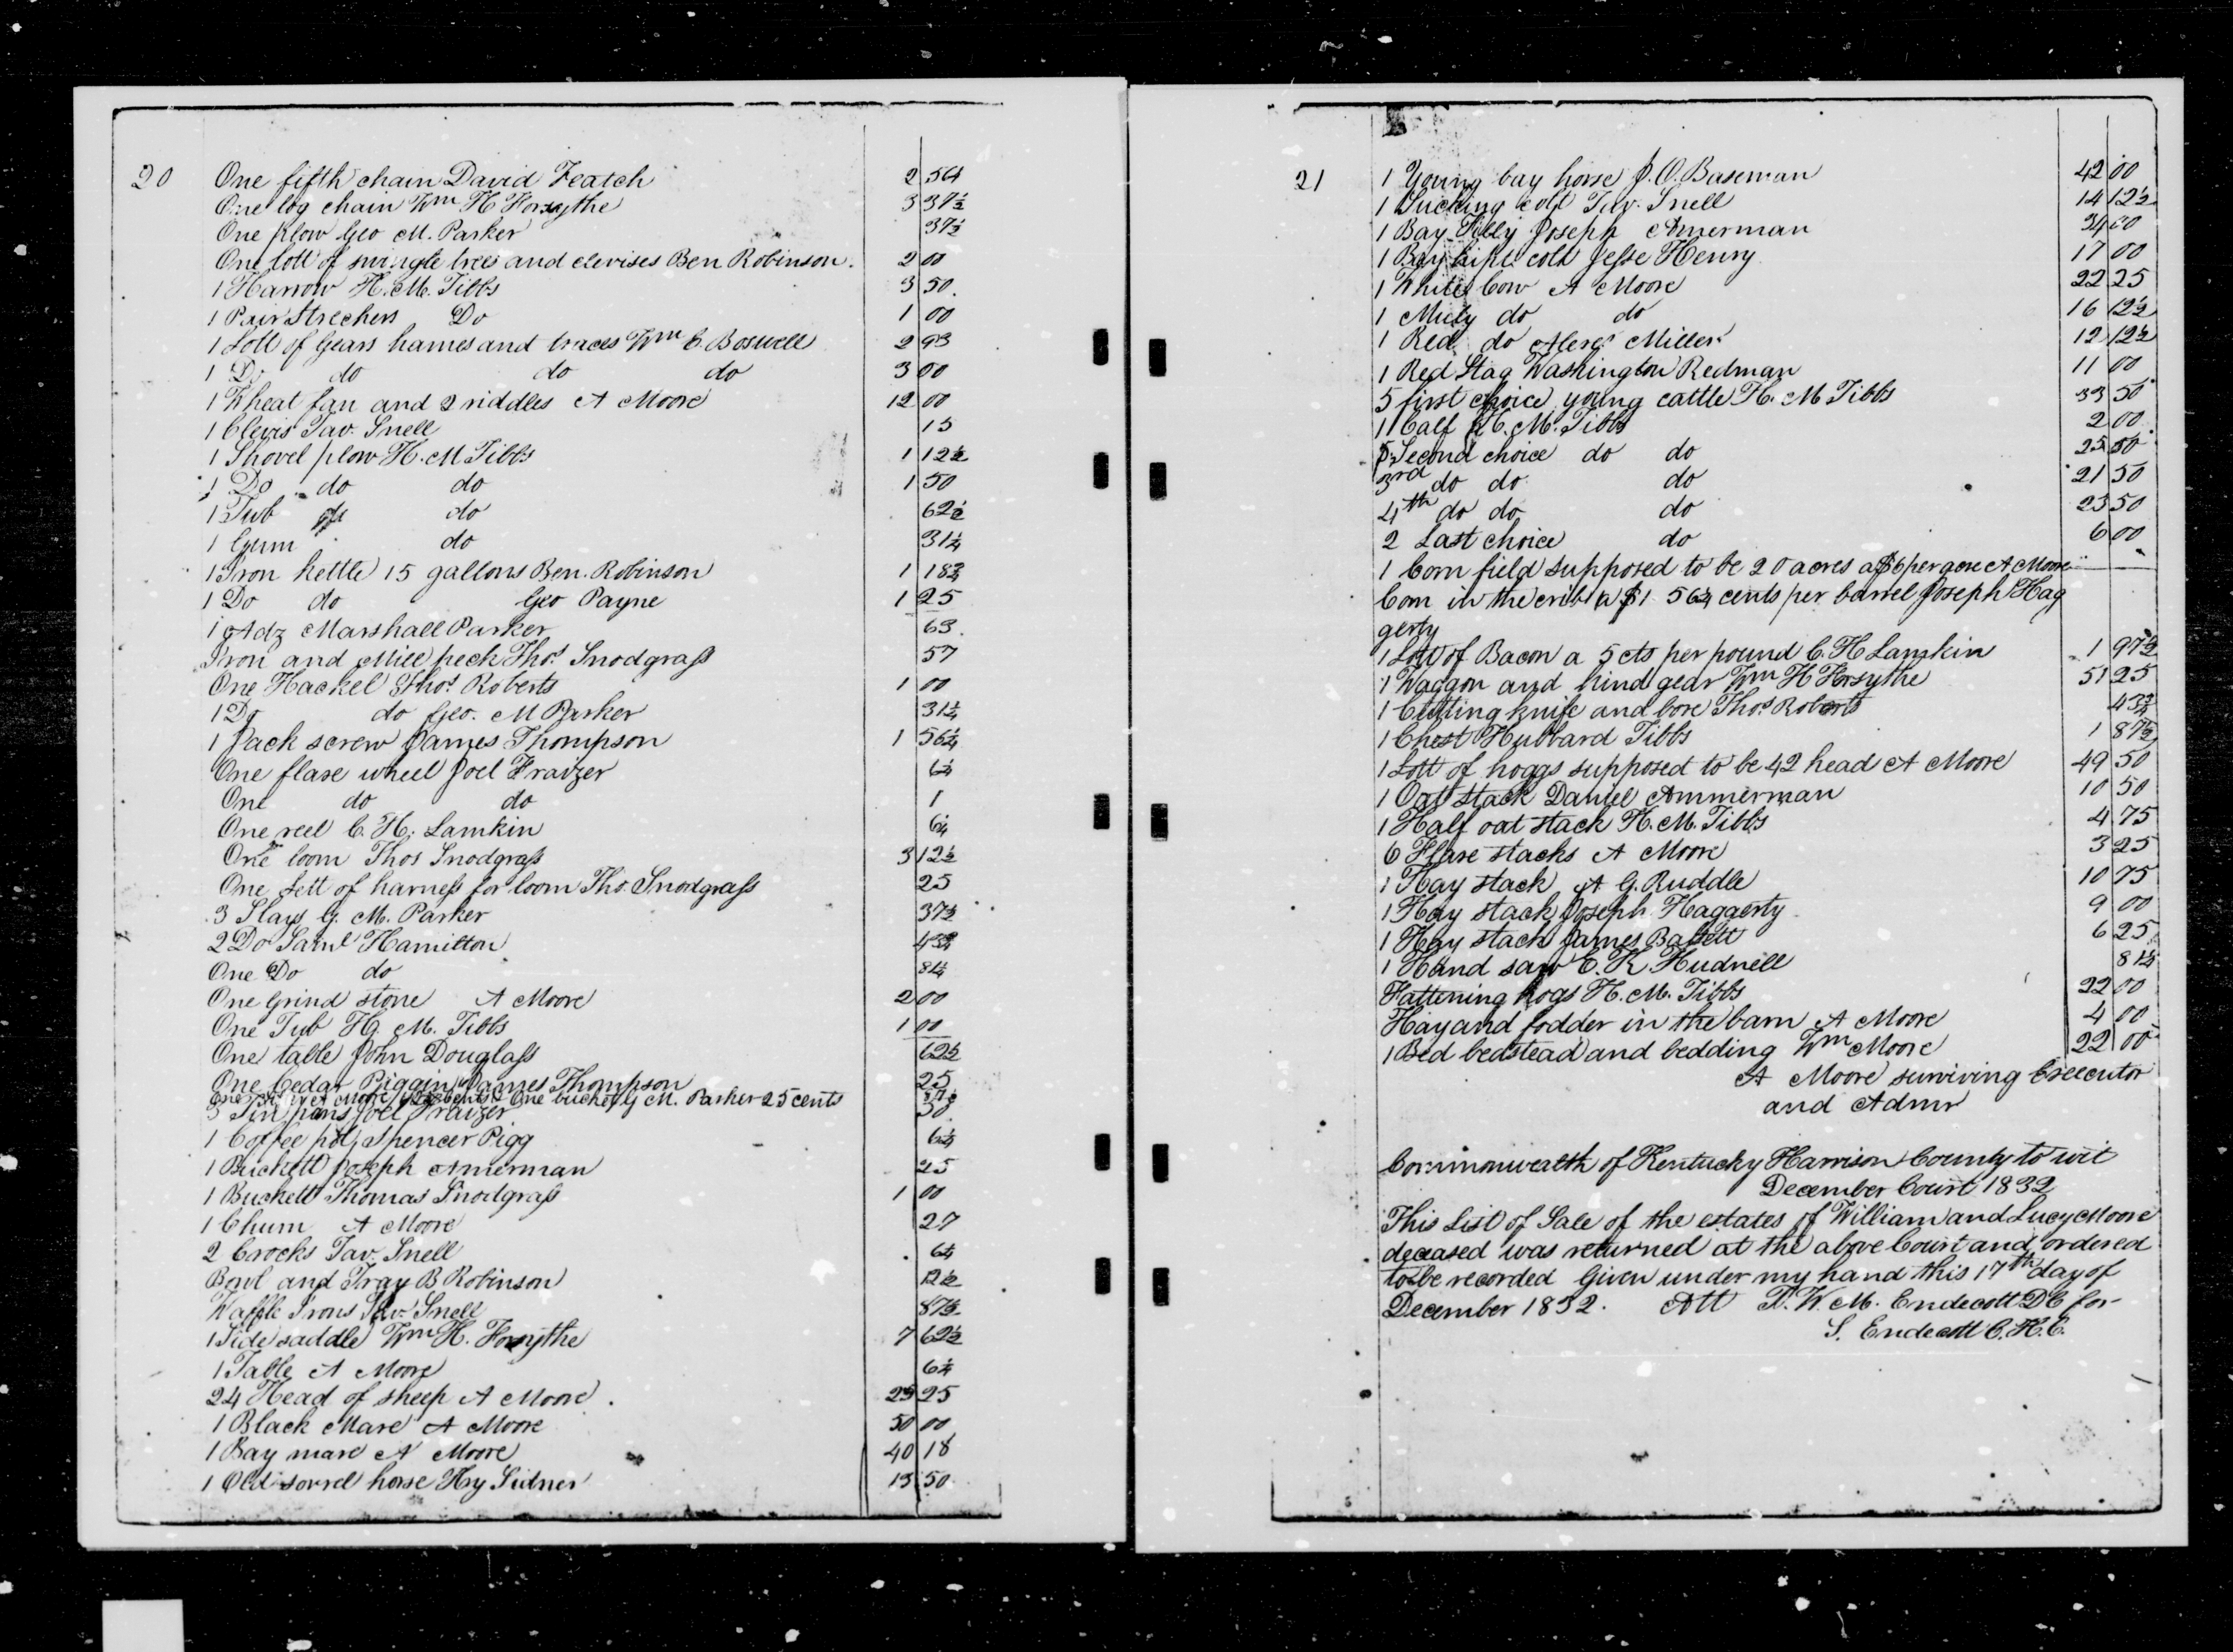 20
One fifth chain David Featch 2 56¼
One log chain Wm H Forsythe 3 37½
One plow Geo M. Parker 37½
One lott of swingle trees and clevises Ben Robinson. 2 00
1 Harrow H. M. Tibbs 3 50.
1 Pair Strechers Do 1 00
1 Lott of Gears hames and traces Wm C. Boswell 2 93
1 Do do do do 3 00
1 Wheat fan and 2 riddles A Moore 12 00
1 Clevis Tav. Snell 15
1 Shovel plow H. M Tibbs 1 12½
1 Do do do 1 50
1 Tub do 62½
1 Gum do 31¼
1 Iron kettle 15 gallons Ben. Robinson 1 18¾
1 Do do Geo Payne 1 25
1 Adz Marshall Parker 63.
Iron and Mill peck Thos Snodgrass 57
One Hackel Thos Roberts 1 00
1 Do do Geo. M Parker 31¼
1 Jack screw James Thompson 1 56¼
One flaxe wheel Joel Fraizer 6¼
One do do 1
One reel C. H. Lamkin 6¼
One loom Thos Snodgrass 3 12½
One Sett of harness for loom Tho. Snodgrass 25
3 Slays G. M. Parker 37½
2 Do Saml Hamilton 43¾
One Do do 81¼
One Grind stone A Moore 2 00
One Tub H. M. Tibbs 1 00
One table John Douglass 62½
One Cedar Piggin James Thompson 25
One A Moore cents One bucket G M. Parker 25 cents
3 Tin pans Joel Fraizer 50
1 Coffee pot Spencer Pigg 6¼
1 Buckett Joseph Amerman 25
1 Buckett Thomas Snodgrass 1 00
1 Churn A Moore 27
2 Crocks Tav. Snell 6¼
Bowl and Tray B Robinson 12½
Waffle Irons Tav. Snell 87½
1 Side saddle Wm H. Forsythe 7 62½
1 Table A Moore 6¼
24 Head of sheep A Moore. 25 25
1 Black Mare A Moore 50 00
1 Bay mare A Moore 40 18
1 Old sorrel horse Hy Sidner 13 50
21
1 Young bay horse J. O. Baseman 42 00
1 Sucking colt Tav. Snell 14 12½
1 Bay Filly Joseph Amerman 34 00
1 Bay colt Jesse Henry 17 00
1 White Cow A Moore 22 25
1 do do 16 12½
1 Red do Alexr Miller 12 12½
1 Red Stag Washington Redman 11 00
5 first choice young cattle H. M Tibbs 33 50
1 Calf H. M. Tibbs 2 00
5 Second choice do do 25 50
3rd do do do 21 50
4th do do do 23 50
2 Last choice do 6 00
1 Corn field supposed to be 20 acres a $6 per acre A Moore
Corn in the crib a $1 56¼ cents per barrel Joseph Hag
gerty
1 Lott of Bacon a 5 cts per pound C. H Lamkin 1 97½
1 Waggon and hind gear Wm H Forsythe 51 25
1 Cutting knife and boxe Thos Roberts 43¾
1 Chest Hubbard Tibbs 1 87½
1 Lott of hoggs supposed to be 42 head A Moore 49 50
1 Oat stack Daniel Ammerman 10 50
1 Half oat stack H. M. Tibbs 4 75
6 Flaxe stacks A Moore 3 25
1 Hay stack A G. Ruddle 10 75
1 Hay stack Joseph Haggerty 9 00
1 Hay stack James Batsett 6 25
1 Hand saw C. K. Hudnell 81¼
Fattening hogs H. M. Tibbs 22 00
Hay and fodder in the barn A Moore 4 00
1 Bed bedstead and bedding Wm Moore 22 00
A Moore surviving Executor
and Admr
Commonwealth of Kentucky Harrison County to wit
December Court 1832
This List of Sale of the estates of William and Lucy Moore
deceased was returned at the above Court and ordered
to be recorded Given under my hand this 17th day of
December 1832. Att T. W. M. Endecott DC for
S. Endecott C. H. C.